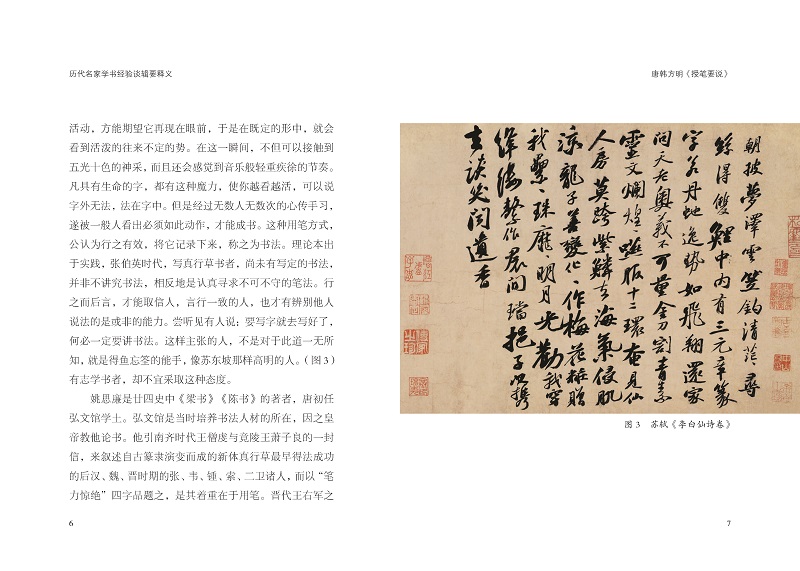 历代名家学书经验谈辑要释义
活动，方能期望它再现在眼前，于是在既定的形中，就会
看到活泼的往来不定的势。在这一瞬间，不但可以接触到
五光十色的神采，而且还会感觉到音乐般轻重疾徐的节奏。
凡具有生命的字，都有这种魔力，使你越看越活，可以说
字外无法，法在字中。但是经过无数人无数次的心传手习，
遂被一般人看出必须如此动作，才能成书。这种用笔方式，
公认为行之有效，将它记录下来，称之为书法。理论本出
于实践，张伯英时代，写真行草书者，尚未有写定的书法，
并非不讲究书法，相反地是认真寻求不可不守的笔法。行
之而后言，才能取信人，言行一致的人，也才有辨别他人
说法的是或非的能力。尝听见有人说：要写字就去写好了，
何必一定要讲书法。这样主张的人，不是对于此道一无所
知，就是得鱼忘筌的能手，像苏东坡那样高明的人。（图 3）
有志学书者，却不宜采取这种态度。
姚思廉是廿四史中《梁书》《陈书》的著者，唐初任
弘文馆学士。弘文馆是当时培养书法人材的所在，因之皇
帝教他论书。他引南齐时代王僧虔与竟陵王萧子良的一封
信，来叙述自古篆隶演变而成的新体真行草最早得法成功
的后汉、魏、晋时期的张、韦、锺、索、二卫诸人，而以“笔
力惊绝”四字品题之，是其着重在于用笔。晋代王右军之
6
唐韩方明《授笔要说》
朝披夢澤雲笠釣清茫茫尋
絲得雙鯉中内有三元章篆
字若丹虵逸勢如飛翔還家
問天老奥義不可量金刀割青素
靈文爛煌煌嚥服十二環奄見仙
人房莫跨紫鱗去海氣侵肌
涼龍子善變化化作梅花粧贈
我纍纍珠靡靡明月光勸我穿
絳縷繫作裙間璫挹子以攜
去談笑聞遺香
图 3　苏轼《李白仙诗卷》
7